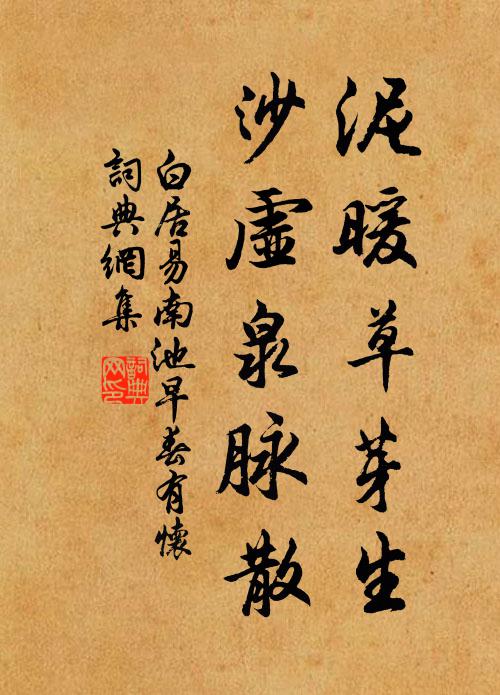 泥暖草芽生
沙虛泉脉散
白居易南池早春有懷
詞典網集
詞典
网印